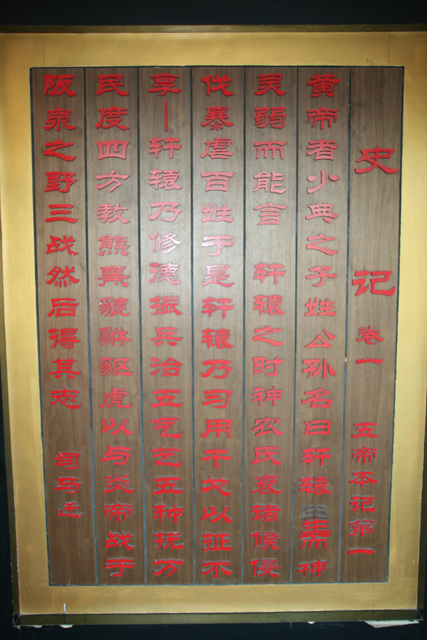 史记 卷一 五帝本记第一
黄帝者少典之子姓公孙名曰轩辕生而神
灵弱而能言 轩辕之时神农氏衰诸候侵
伐暴虐百姓于是轩辕乃习用干戈以征不
享—轩辕乃修德振兵治五气艺五种抚万
民度四方教熊罴貔貅驱虎以与炎帝战于
阪泉之野三战然后得其志 司马迁